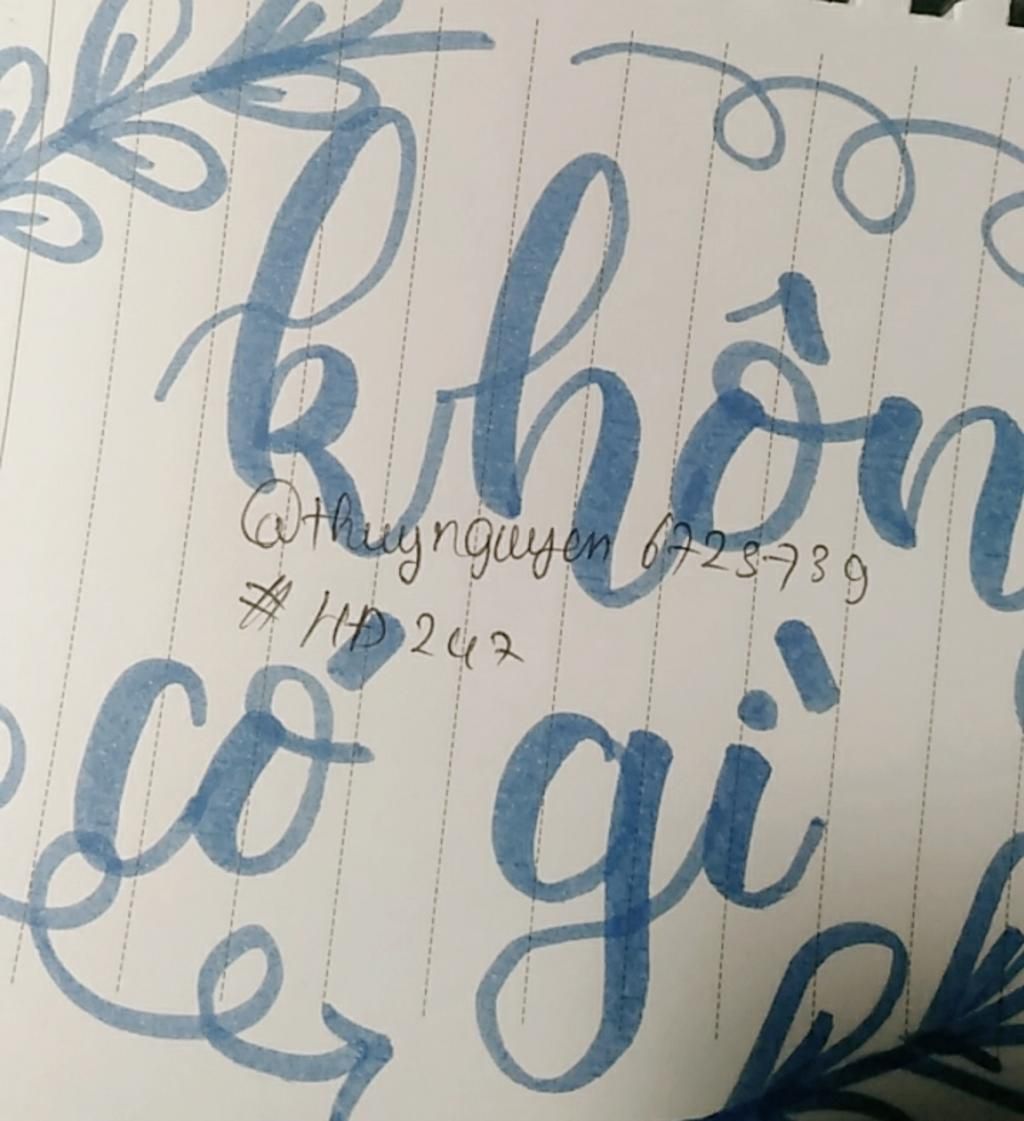 khôn
@thuynguyen 6723739
#HĐ247
có gì